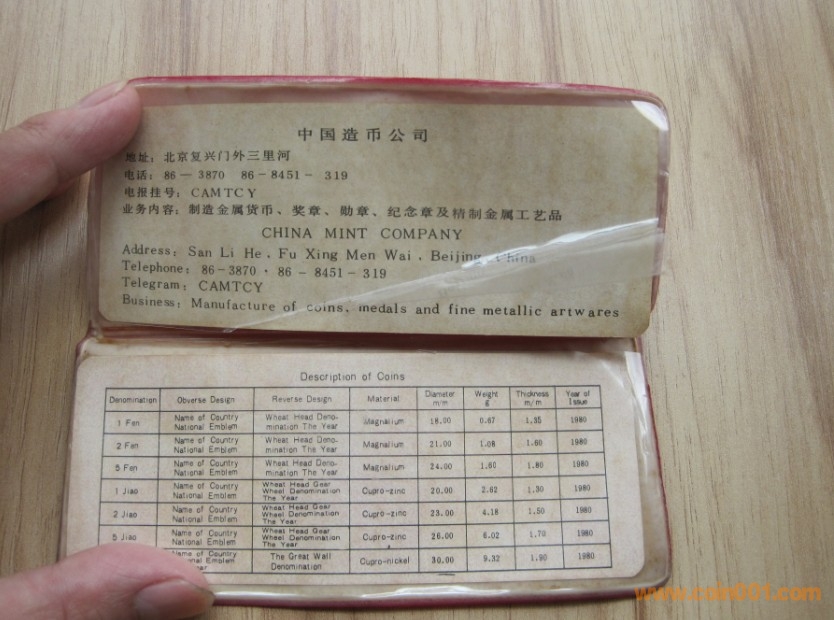 中国造币公司
地址：北京复兴门外三里河
电话：86－3870 86-8451－319
电报挂号：CAMTCY
业务内容：制造金属货币、奖章、勋章、纪念章及精制金属工艺品
CHINA MINT COMPANY
Address: San Li He, Fu Xing Men Wai, Beijing, China
Telephone: 86-3870 · 86-8451-319
Telegram: CAMTCY
Business: Manufacture of coins, medals and fine metallic artwares
Description of Coins
Denomination Obverse Design Reverse Design Material Diameter m/m Weight g Thickness m/m Year of Issue
1 Fen Name of Country National Emblem Wheat Head Deno-mination The Year Magnalium 18.00 0.67 1.35 1980
2 Fen Name of Country National Emblem Wheat Head Deno-mination The Year Magnalium 21.00 1.08 1.60 1980
5 Fen Name of Country National Emblem Wheat Head Deno-mination The Year Magnalium 24.00 1.60 1.80 1980
1 Jiao Name of Country National Emblem Wheat Head Gear Wheel Denomination The Year Cupro-zinc 20.00 2.62 1.30 1980
2 Jiao Name of Country National Emblem Wheat Head Gear Wheel Denomination The Year Cupro-zinc 23.00 4.18 1.50 1980
5 Jiao Name of Country National Emblem Wheat Head Gear Wheel Denomination The Year Cupro-zinc 26.00 6.02 1.70 1980
of Country Emblem The Great Wall Denomination Cupro-nickel 30.00 9.32 1.90 1980
www.coin001.com